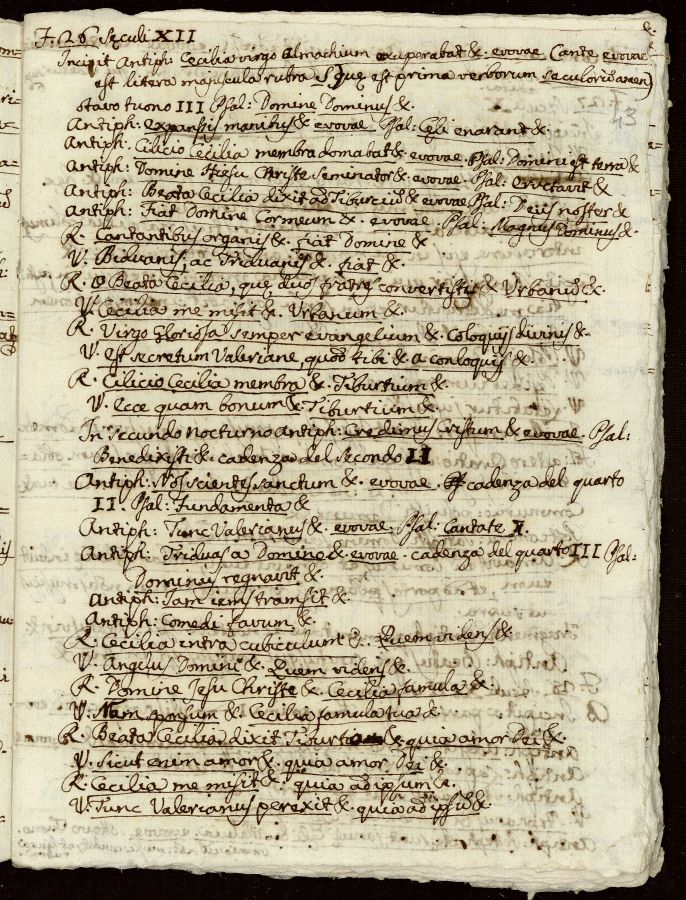 F. 26 Seculi XII
&.
Incipit Antiph: Cecilia virgo Almachium exuperabat &. evovae Cante evovae
est litera majuscula rubra S, que est prima verborum seculorũ amen)
43
ottavo tuono III Psal: Domine Dominus &.
Antiph: expansis manibus & evovae Psal: Celi enarant &.
Antiph: Cilicio Cecilia membra domabat & evovae. Psal: Domini est terra &
Antiph: Domine Christe Seminator & evovae. Psal: Eructavit &
Antiph: Beata Cecilia dixit ad Tiburciũ & evovae Psal: Deus noster &
Antiph: Fiat Domine Cor meum &. evovae Psal: Magnus Dominus &.
R. Cantantibus organis &. fiat Domine &
V. Biduanis, ac Triduanis &. fiat &.
R. O Beata Cecilia, que duos fratres convertisti & Urbanũ &.
V. Cecilia me misit &. Urbanum &.
R. Virgo gloriosa semper evangelium & Coloquijs divinis &.
V. est secretum Valeriane, quod tibi &. a conloquijs &.
R. Cilicio Cecilia membra &. Tiburtium &.
V. Ecce quam bonum &. Tiburtium &.
In secundo Nocturno Antiph: Credimus Cristum & evovae. Psal:
Benedixisti &. cadenza del secondo II
Antiph: Nos scientes sanctum &. evovae. cadenza del quarto
II. Psal: Fundamenta &
Antiph: Tunc Valerianus &. evovae. Psal: Cantate I.
Antiph: Triduas a Domino & evovae. cadenza del quarto III Psal:
Dominus regnavit &.
Antiph: Iam iens transit &.
Antiph: Comedi favum, &.
R. Cecilia intra cubiculum &. Quem videns &.
V. Angelus Domini &. Quem videns &.
R. Domine Jesu Christe &. Cecilia famula &.
V. Nam sponsum &. Cecilia famula tua &
R. Beata Cecilia dixit Tiburt &. quia amor Dei &.
V. Sicut enim amor &. quia amor Dei &.
R. Cecilia me misit &. quia ad ipsum &.
V. Tunc Valerianus perexit &. quia ad ipsũ &.